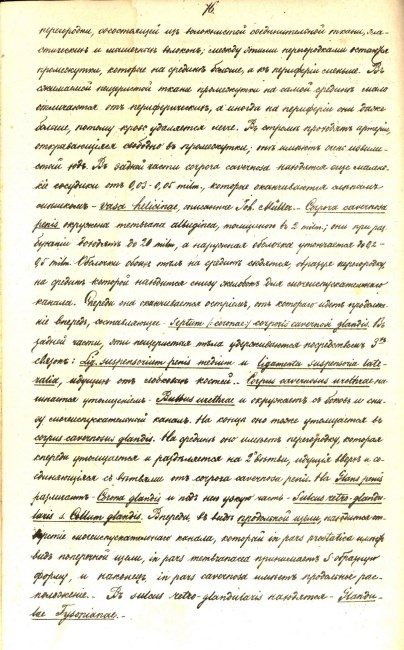 76.
перегородки, состоящiй изъ волокнистой соединительной ткани, эла-
стическихъ и мышечныхъ волоконъ; между этими перегородками остаются
промежутки, которые на срединѣ больше, а къ периферiи меньше. Въ
сжимаемой пещеристой ткани промежутки на самой срединѣ мало
отличаются отъ периферическихъ, а иногда на периферiи они даже
больше, потому кровь удаляется легче. Въ строма проходятъ артерiи,
открывающiяся свободно въ промежутки; онѣ имѣютъ очень извили-
стой ходъ. Въ задней части corpora cavernosa находятся еще малень-
кiе сосудики отъ 0,03-0,05 mlm., которые оканчиваются слѣпымъ
концомъ - vasa helicinae, описанные Joh. Müller. - Corpora cavernosa
penis окружена membrana albuginea, толщиною въ 2 mlm.; они при раз-
буханiи доходятъ до 20 mlm., а наружная оболочка утончается до 0,2-
0,5 mlm. Оболочки обоихъ тѣлъ на срединѣ сходятся, образуя перегородку,
на срединѣ которой находится снизу желобъ для мочеиспускательнаго
канала. Спереди она оканчивается острiемъ, отъ котораго идетъ продолже-
нiе впередъ, составляющее - Septum (coronae) corporis cavernosi glandis. Въ
задней части, эти пещеристыя тѣла удерживаются посредствомъ 3хъ
связокъ: Lig. suspensorium penis medium и ligamenta suspensoria late-
ralia, идущихъ отъ лобковыхъ костей. - Corpus cavernosus urethrae на-
чинается утолщенiемъ - Bulbus urethrae и окружаетъ съ боковъ и сни-
зу мочеиспускательной каналъ. На концѣ оно тоже утолщается въ
corpus cavernosus glandis. На срединѣ оно имѣетъ перегородку, которая
спереди утолщается и раздѣляется на 2 вѣтви, идущiя вверхъ и со-
единяющiяся съ вѣтвями отъ corpora cavernosa penis. На Glans penis
различаютъ - Corona glandis и подъ нею узкую часть - Sulcus retro-glandu-
laris s. Collum glandis. Впереди, въ видѣ продольной щели, находится от-
верстiе мочеиспускательнаго канала, который in pars prostatica имѣетъ
видъ поперечной щели, in pars membranacea принимаетъ S-образную
форму, и наконецъ, in pars cavernosa имѣетъ продольное рас-
положенiе. - Въ sulcus retro-glandularis находятся - Glandu-
lae Tysonianae. -